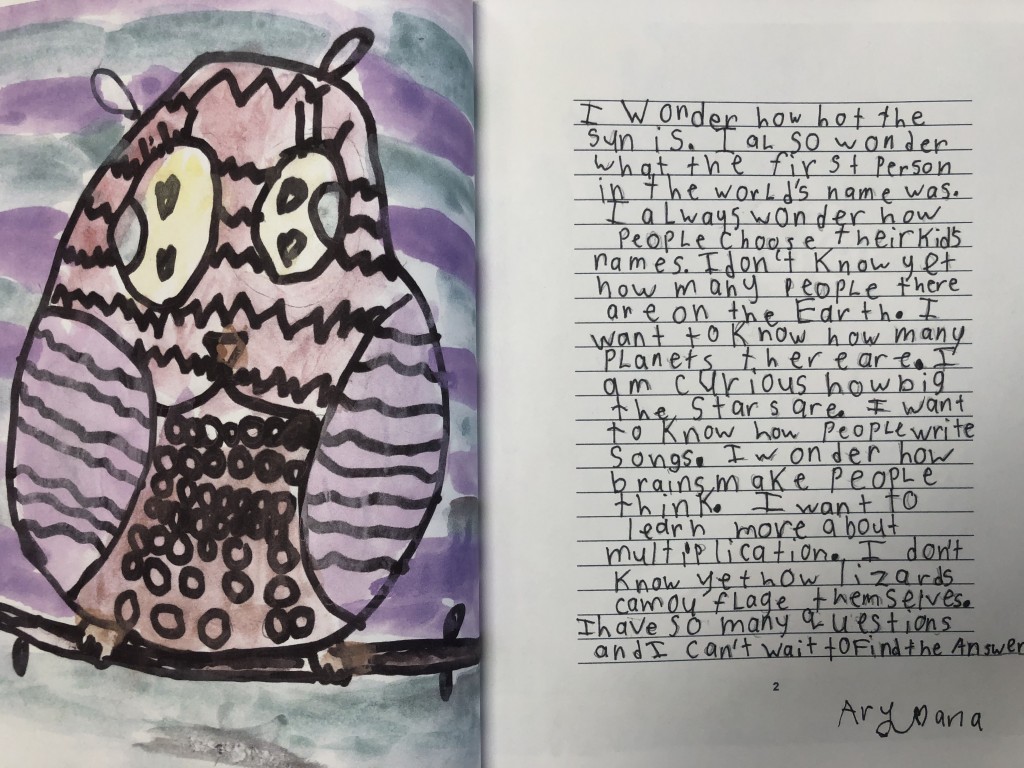 I Wonder how hot the
sun is. I also wonder
what the first Person
in the world's name was.
I always wonder how
People choose their kids
names. I don't know yet
how many people there
are on the Earth. I
want to know how many
Planets there are. I
am curious how big
the Stars are. I want
to know how People write
Songs. I wonder how
brains make People
think. I want to
learn more about
multiplication. I don't
know yet how lizards
camoyflage themselves.
I have so many questions
and I can't wait to Find the Answer
2
Aryana